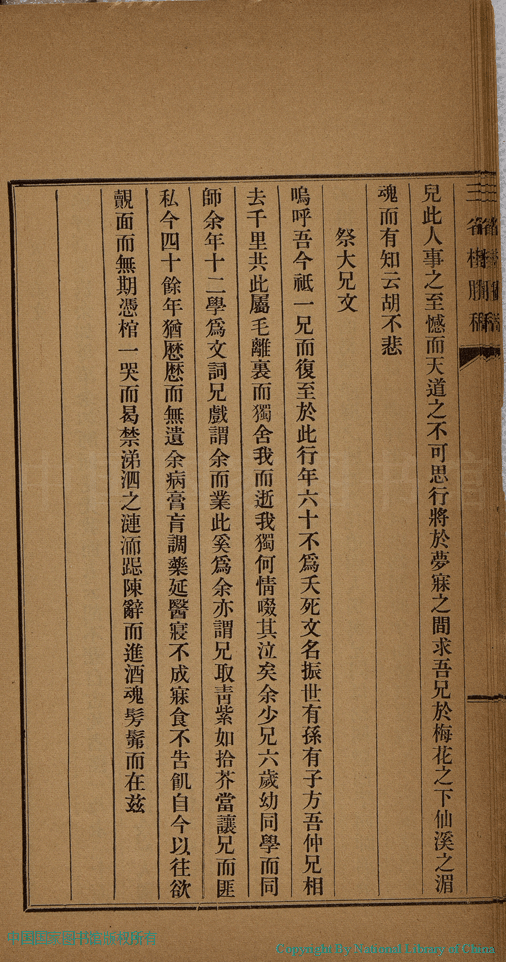 兒此人事之至憾而天道之不可思行將於夢寐之間求吾兄於梅花之下仙溪之湄
魂而有知云胡不悲
祭大兄文
嗚呼吾今祗一兄而復至於此行年六十不為夭死文名振世有孫有子方吾仲兄相
去千里共此屬毛離裏而獨舍我而逝我獨何情啜其泣矣余少兄六歲幼同學而同
師余年十二學為文詞兄戲謂余而業此奚為余亦謂兄取靑紫如拾芥當讓兄而匪
私今四十餘年猶厯厯而無遺余病膏肓調藥延醫寢不成寐食不告飢自今以往欲
覿面而無期憑棺一哭而曷禁涕泗之漣洏跽陳辭而進酒魂髣髴而在兹
Copyright By National Library of China